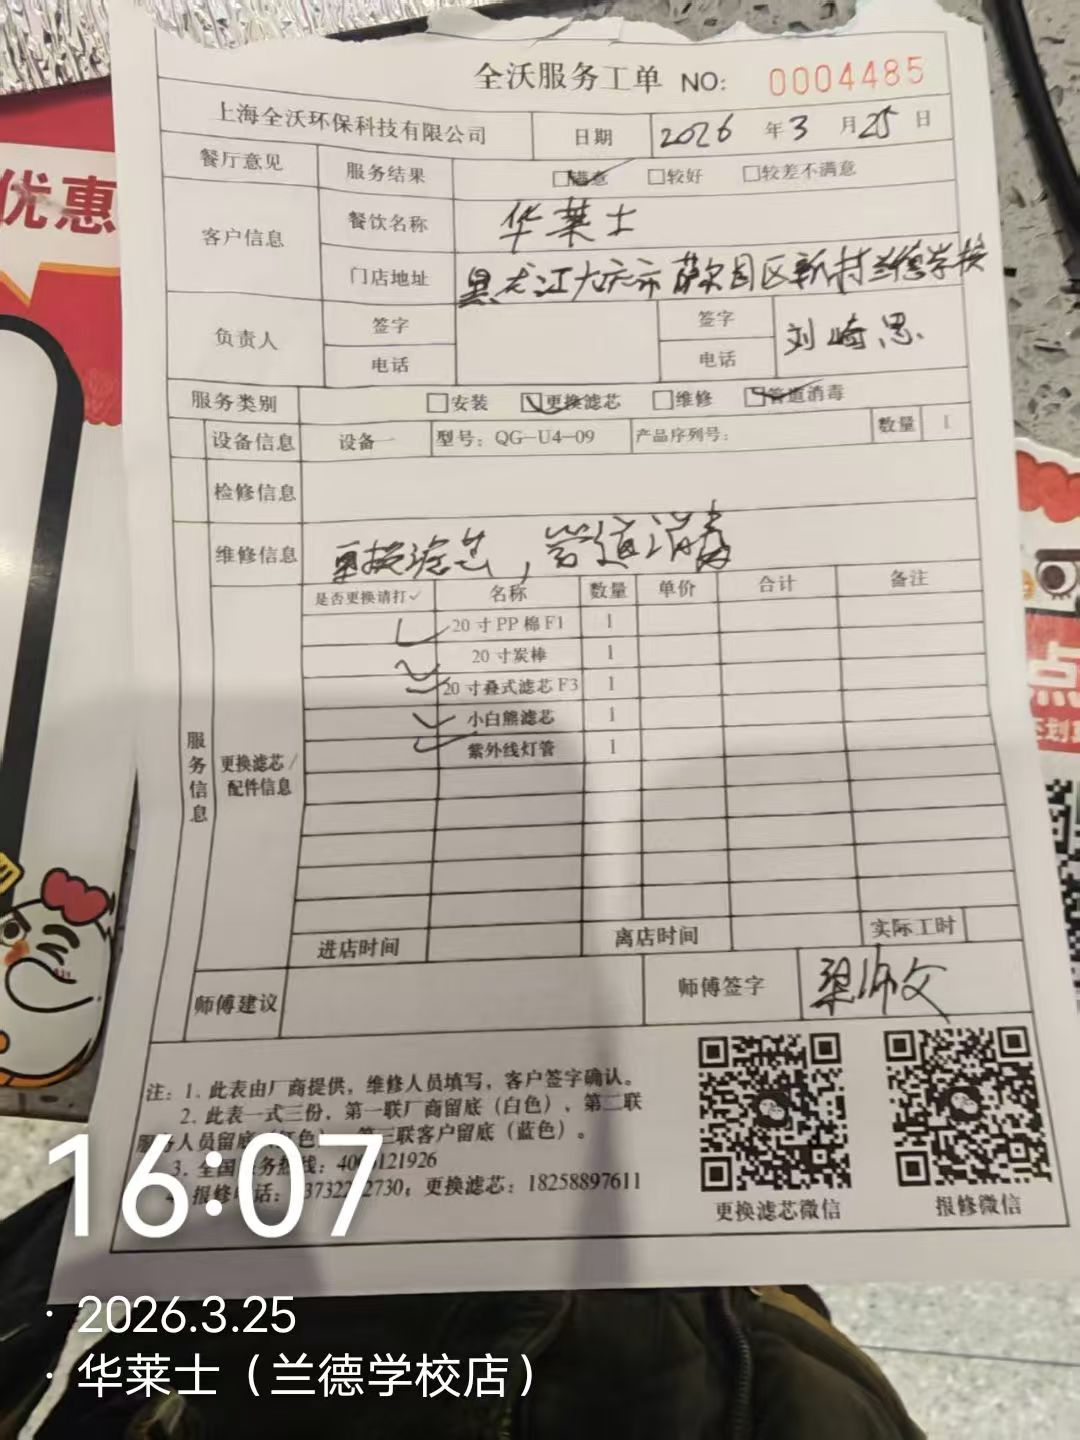 全沃服务工单 NO: 0004485
上海全沃环保科技有限公司 日期 2026 年 3 月 25 日
餐厅意见 服务结果 □满意 □较好 □较差不满意
客户信息 餐饮名称 华莱士
门店地址 黑龙江大庆市萨尔图区新村兰德学校
负责人 签字 签字 刘崎思
电话 电话
服务类别 □安装 □更换滤芯 □维修 □管道消毒
设备信息 设备一 型号：QG-U4-09 产品序列号： 数量 1
检修信息
维修信息 更换滤芯，管道消毒
是否更换请打✓ 名称 数量 单价 合计 备注
✓ 20寸PP棉F1 1
✓ 20寸炭棒 1
✓ 20寸叠式滤芯F3 1
✓ 小白熊滤芯 1
✓ 紫外线灯管 1
服务信息
更换滤芯/
配件信息
进店时间 离店时间 实际工时
师傅建议 师傅签字
注：1. 此表由厂商提供，维修人员填写，客户签字确认。
2. 此表一式三份，第一联厂商留底（白色），第二联
服务人员留底（红色），第三联客户留底（蓝色）。
3. 全国服务热线：
报修电话： 更换滤芯：18258897611
更换滤芯微信 报修微信
优惠
点
16:07
· 2026.3.25
· 华莱士（兰德学校店）